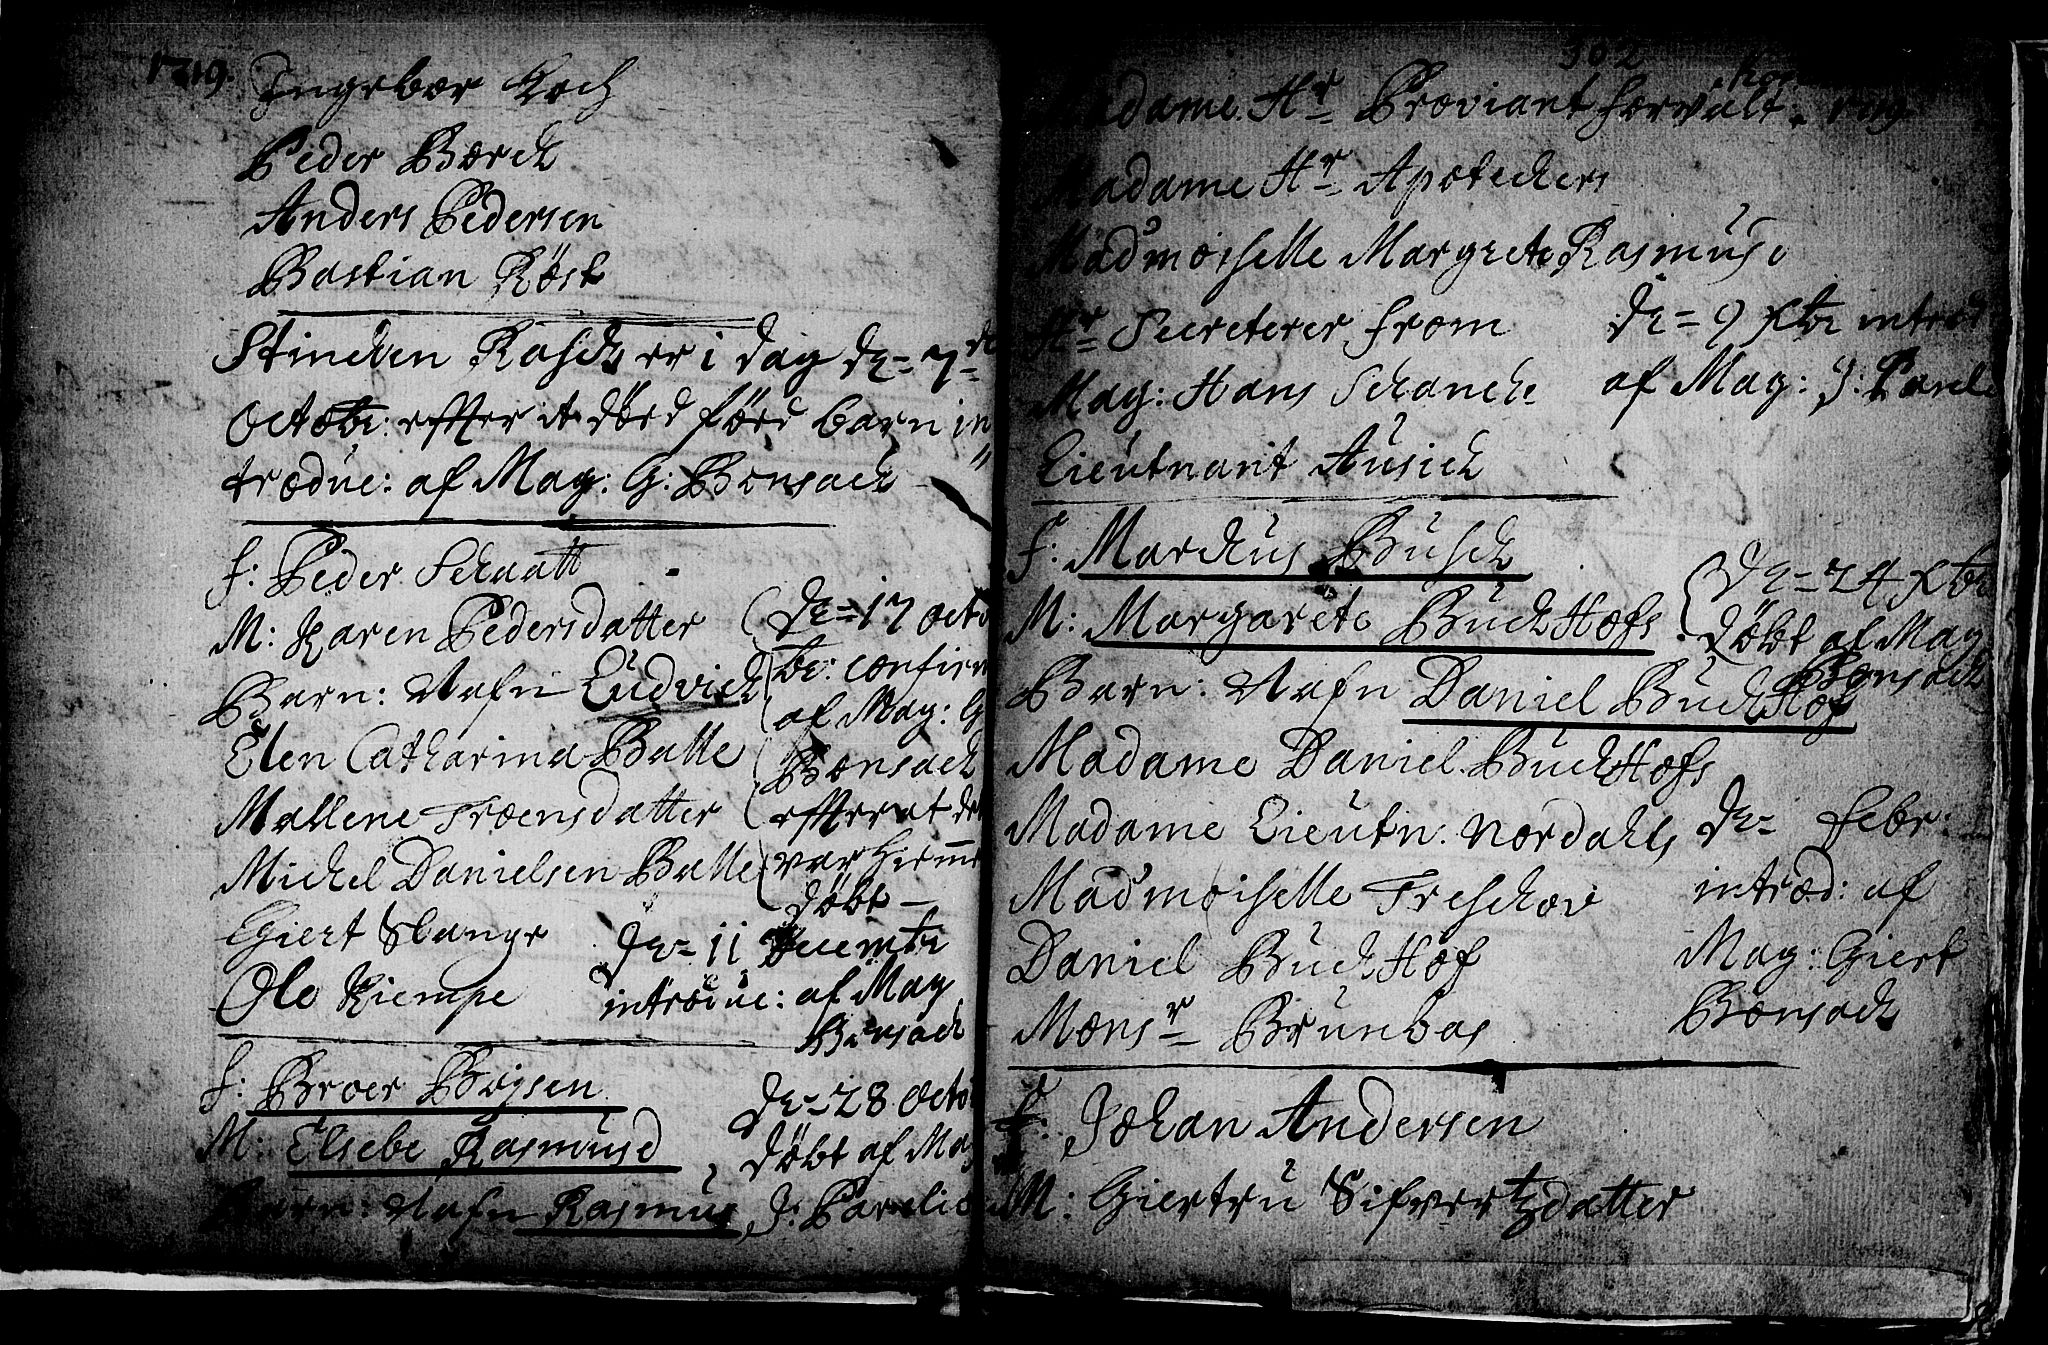 1719.
Ingebor Koch
Peder Borck
Anders Pedersen
Bastian Röst
Stincken Rasch er i dag dn= 7de
Octobr: effter it död föed barn in
troduc: af Mag: G: Bonsack
F: Peder Schaatt
M: Karen Pedersdatter
Barn: Nafn Ludvich
Elen Catharina Balle
Mallene Troensdatter
Michel Danielsen Balle
Giert Lange
Ole Kiempe
dn= 17 Octo
br: confirm
af Mag: G
Bonsack
effter at det
var hiemme
döbt
dn= 11 Decembr
introduc: af Mag
Bonsack
F: Broer Boysen
M: Elsebe Rasmusd
Barn: Nafn Rasmus
dn= 28 Octo
döbt af Mag
J: Parelio
302
1719.
Madame Hr Proviantforvalt.
Madame Hr Apoteckers
Madmoiselle Margrete Rasmus
Hr Secreterer From
Mag: Hans Schanche
Lieutnant Ausich
dn= 9 Xbr introd
af Mag: J: Pareli
F: Marckus Busch
M: Margarete BuckHofs
Barn: Nafn Daniel BuckHof
dn= 24 Xbr
döbt af Mag
Bonsack
Madame Daniel BuckHofs
Madame Lieutn. Nordahls
Madmoiselle Treschow
Daniel BuckHof
Monsr Brunbas
dn= Febr:
introd: af
Mag: Giert
Bonsack
F: Johan Andersen
M: Giertru Sifvertzdatter